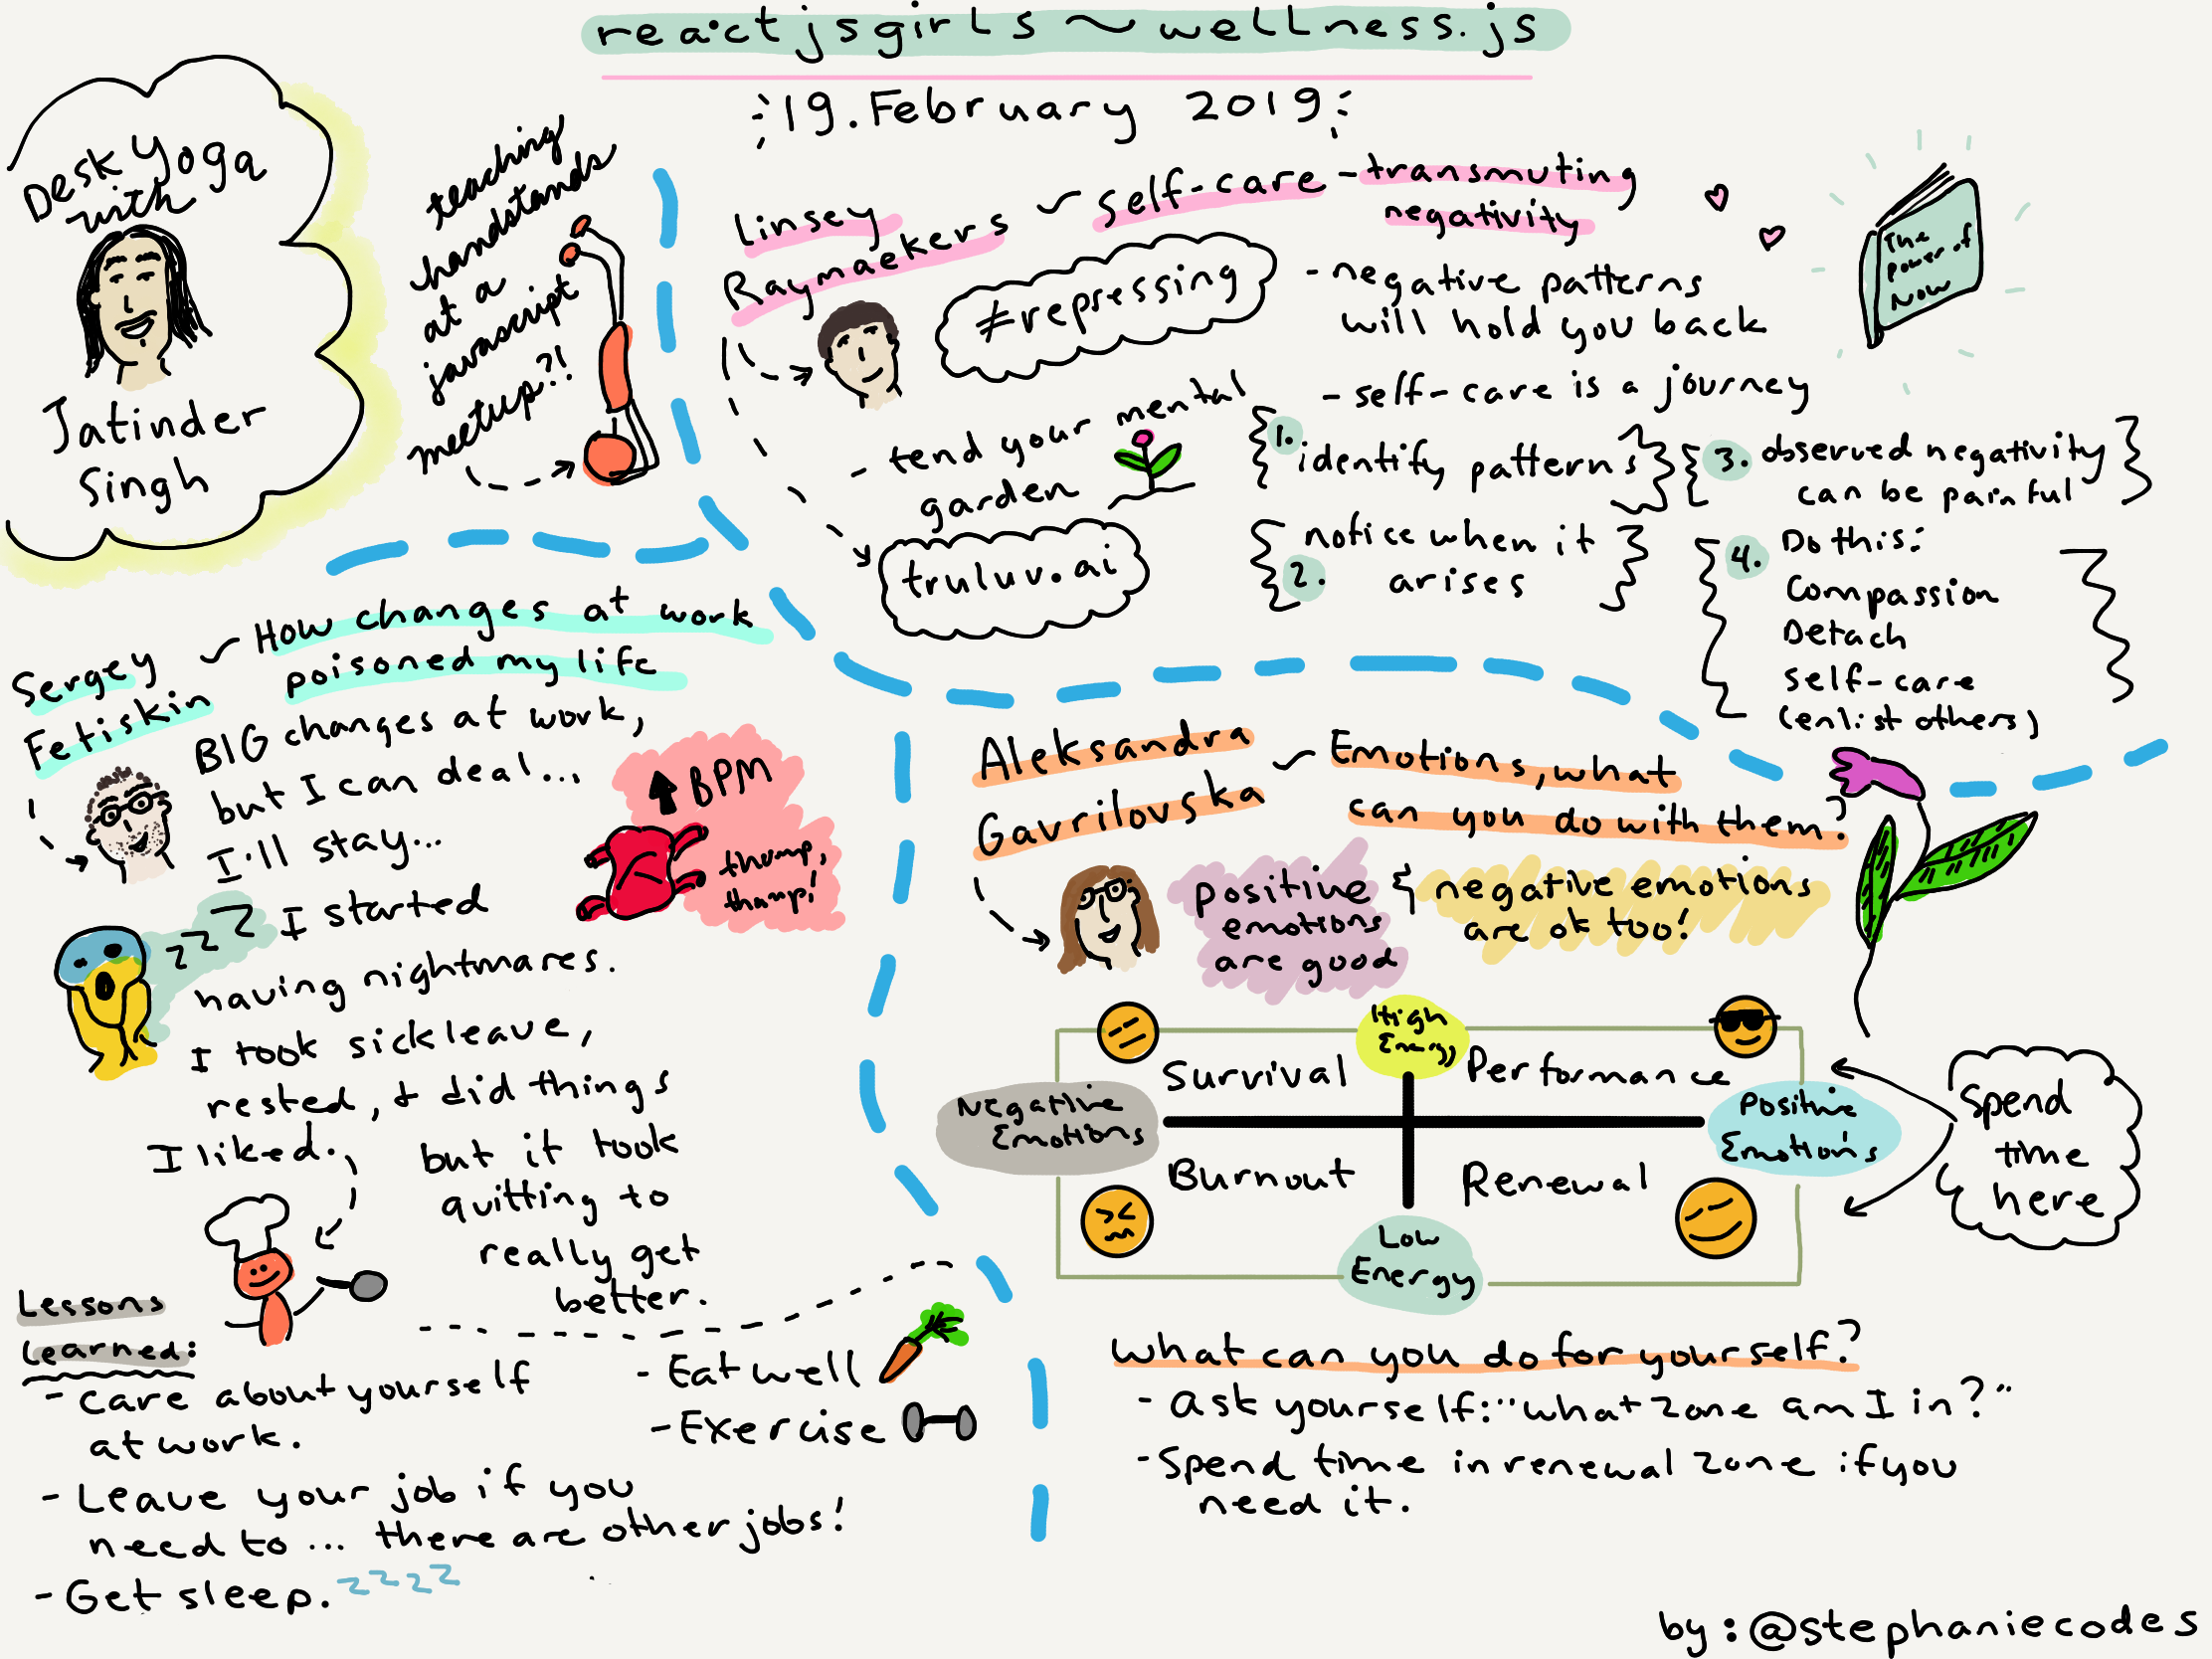 reactjsgirls ~ wellness.js
19. February 2019
Desk Yoga
with
Jatinder
Singh
teaching
handstands
at a
javascript
meetup?!
Linsey
Raymaekers
~ Self-care - transmuting
negativity
≠repressing
- negative patterns
will hold you back
- self-care is a journey
The
Power of
Now
- tend your mental
garden
truluv.ai
1. identify patterns
2. notice when it
arises
3. observed negativity
can be painful
4. Do this:
Compassion
Detach
Self-care
(enlist others)
Sergey
Fetiskin
~ How changes at work
poisoned my life
BIG changes at work,
but I can deal...
I'll stay...
BPM
thump,
thump!
zzz I started
having nightmares.
I took sick leave,
rested, & did things
I liked.
but it took
quitting to
really get
better.
Lessons
Learned:
- Care about yourself
at work.
- Leave your job if you
need to... there are other jobs!
- Get sleep. zzzz
- Eat well
- Exercise
Aleksandra
Gavrilovska
~ Emotions, what
can you do with them?
positive
emotions
are good
& negative emotions
are ok too!
High
Energy
Survival
Performance
Negative
Emotions
Positive
Emotions
Burnout
Renewal
Low
Energy
Spend
time
here
What can you do for yourself?
- Ask yourself: "what zone am I in?"
- Spend time in renewal zone if you
need it.
by: @stephaniecodes